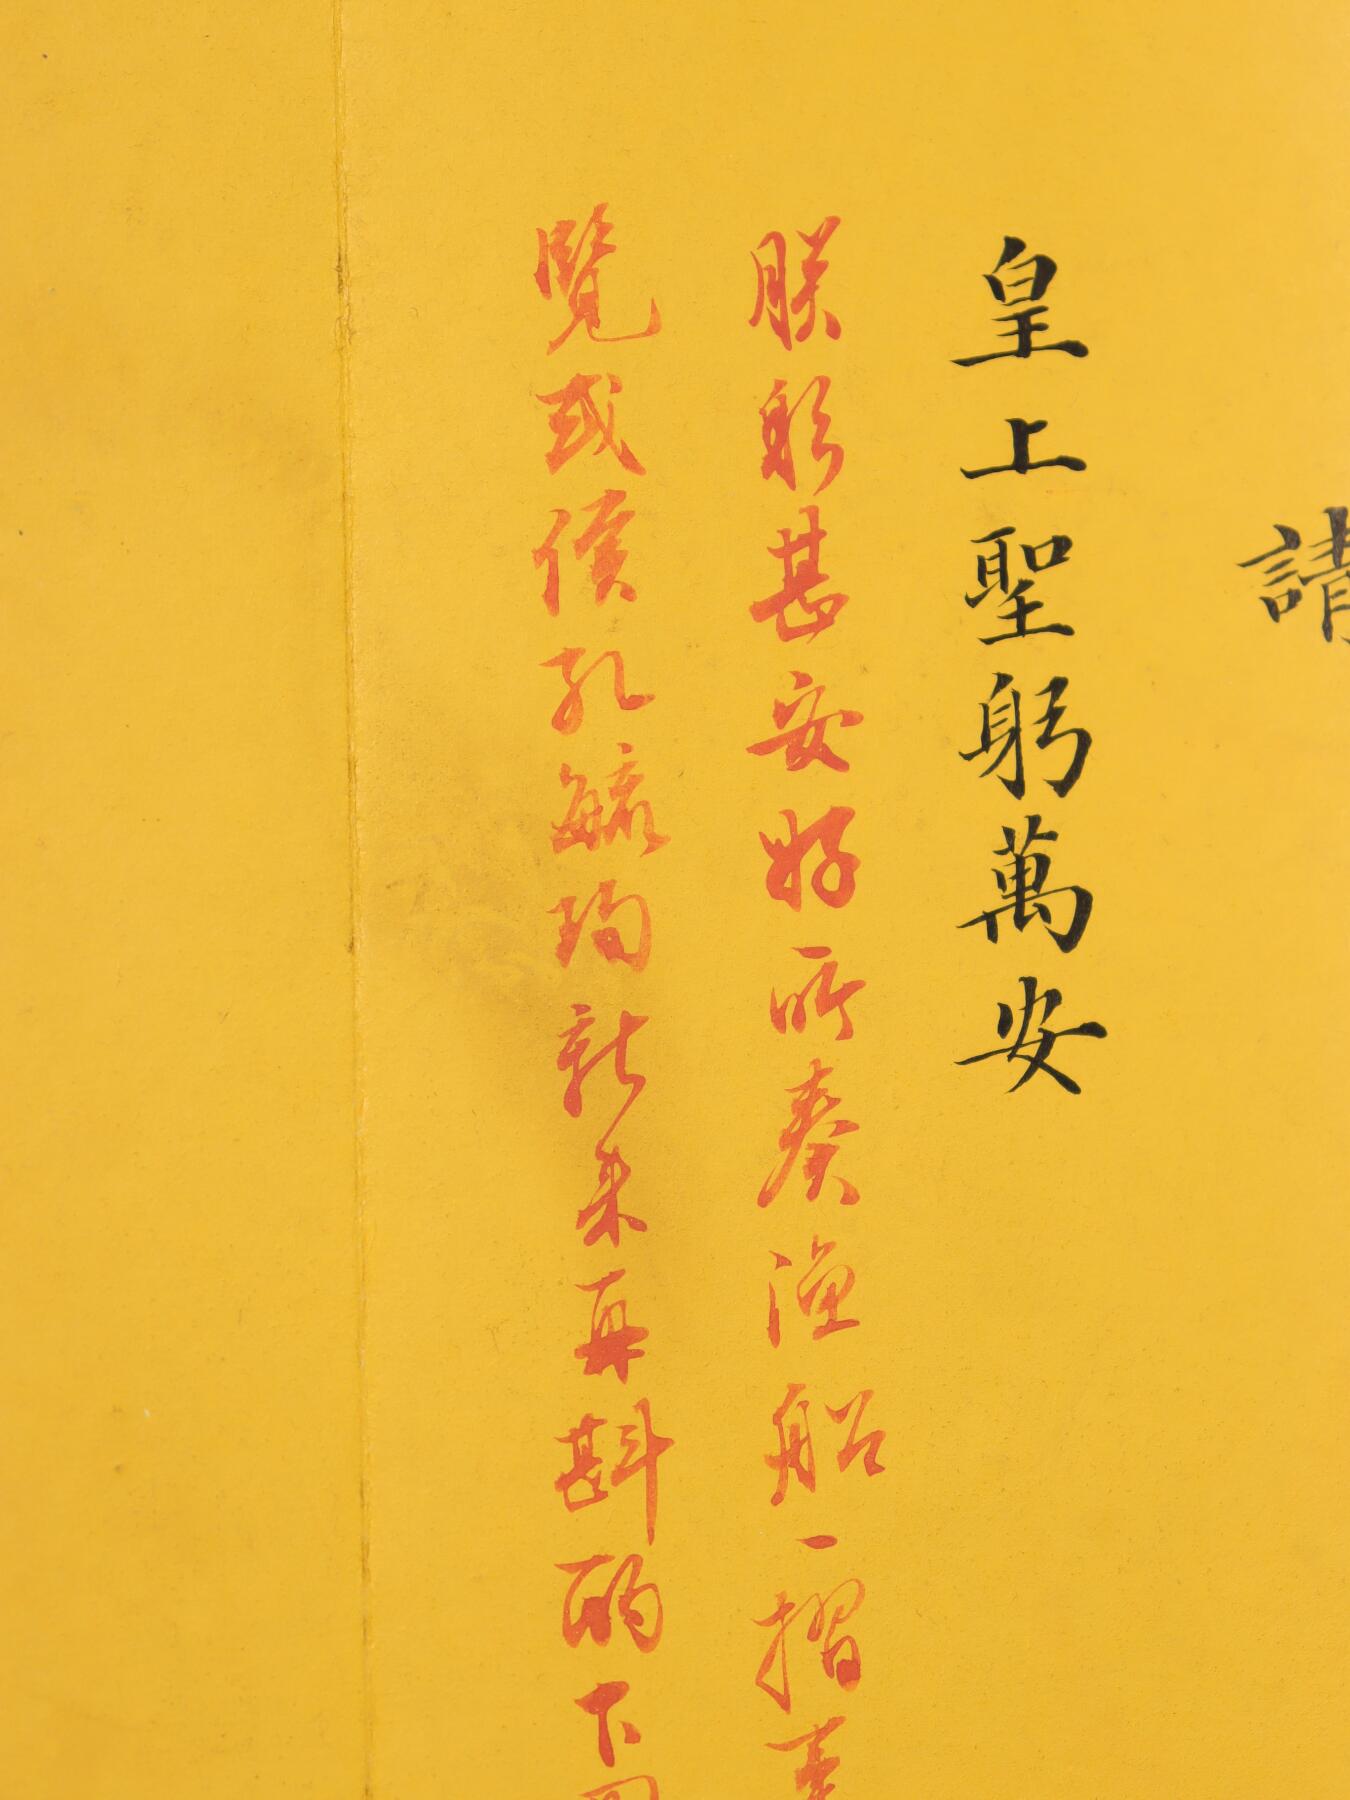 請
皇上聖躬萬安
朕躬甚安好所奏漁船一摺
覽或候孔毓珣新來再斟酌下